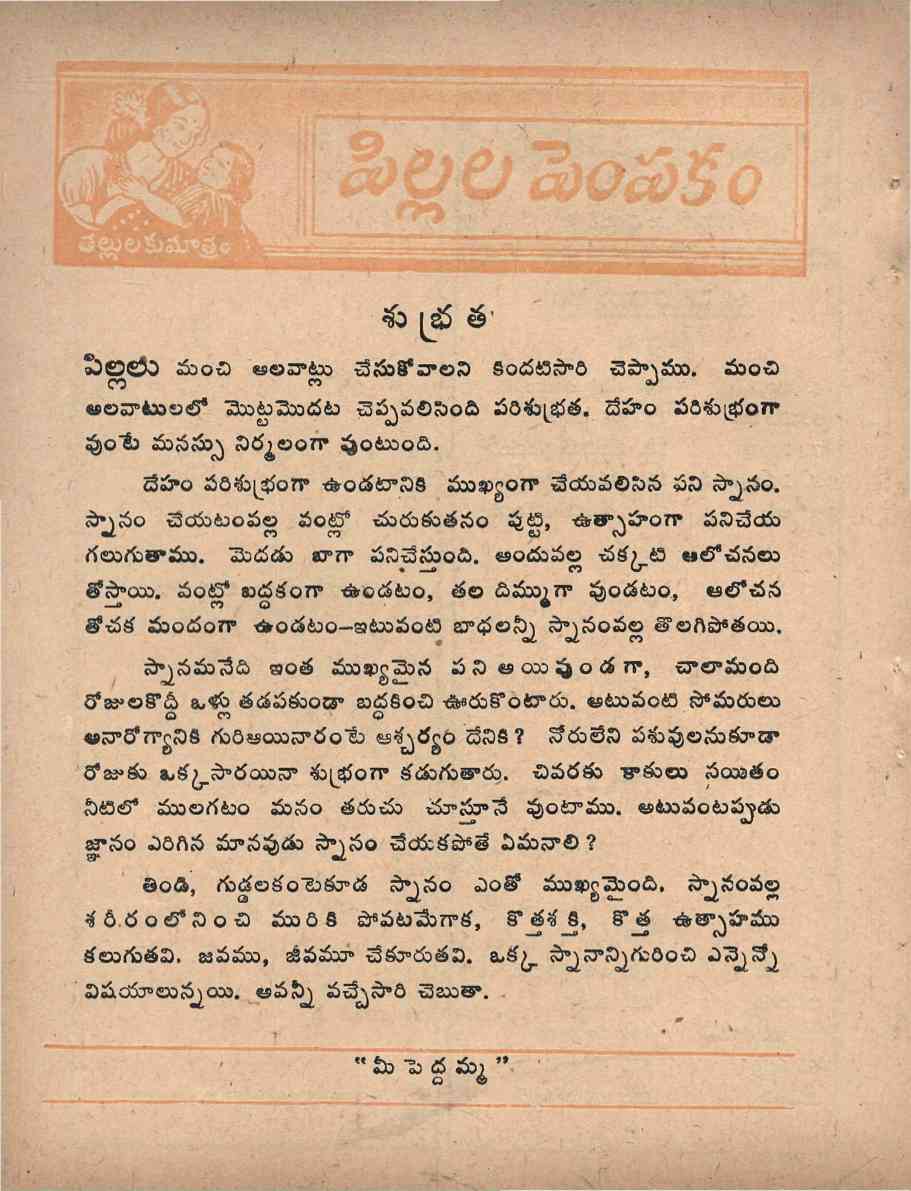 పిల్లల పెంపకం
తల్లులకుమాత్రం
శుభ్రత
పిల్లలు మంచి అలవాట్లు చేసుకోవాలని కిందటిసారి చెప్పాము. మంచి
అలవాటులలో మొట్టమొదట చెప్పవలిసింది పరిశుభ్రత. దేహం పరిశుభ్రంగా
వుంటే మనస్సు నిర్మలంగా వుంటుంది.
దేహం పరిశుభ్రంగా ఉండటానికి ముఖ్యంగా చేయవలిసిన పని స్నానం.
స్నానం చేయటంవల్ల వంట్లో చురుకుతనం పుట్టి, ఉత్సాహంగా పనిచేయ
గలుగుతాము. మెదడు బాగా పనిచేస్తుంది. అందువల్ల చక్కటి ఆలోచనలు
తోస్తాయి. వంట్లో బద్ధకంగా ఉండటం, తల దిమ్ముగా వుండటం, ఆలోచన
తోచక మందంగా ఉండటం—ఇటువంటి బాధలన్నీ స్నానంవల్ల తొలగిపోతయి.
స్నానమనేది ఇంత ముఖ్యమైన పని అయివుండగా, చాలామంది
రోజులకొద్దీ ఒళ్లు తడపకుండా బద్ధకించి ఊరుకొంటారు. అటువంటి సోమరులు
అనారోగ్యానికి గురిఅయినారంటే ఆశ్చర్యం దేనికి? నోరులేని పశువులనుకూడా
రోజుకు ఒక్కసారయినా శుభ్రంగా కడుగుతారు. చివరకు కాకులు సయితం
నీటిలో ములగటం మనం తరుచు చూస్తూనే వుంటాము. అటువంటప్పుడు
జ్ఞానం ఎరిగిన మానవుడు స్నానం చేయకపోతే ఏమనాలి?
తిండి, గుడ్డలకంటెకూడ స్నానం ఎంతో ముఖ్యమైంది. స్నానంవల్ల
శరీరంలోనించి మురికి పోవటమేగాక, కొత్తశక్తి, కొత్త ఉత్సాహము
కలుగుతవి. జవము, జీవమూ చేకూరుతవి. ఒక్క స్నానాన్నిగురించి ఎన్నెన్నో
విషయాలున్నయి. అవన్నీ వచ్చేసారి చెబుతా.
“మీ పెద్దమ్మ”